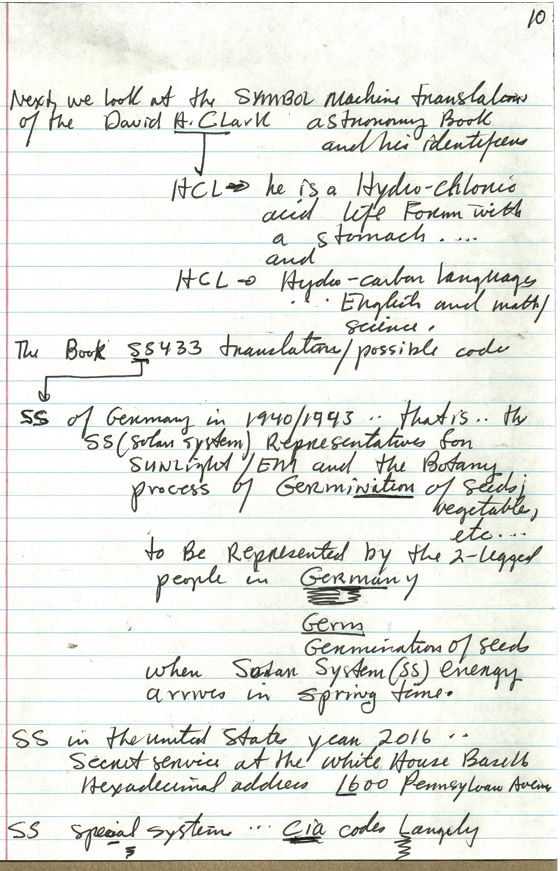 10
Next, we look at the SYMBOL Machine translations
of the David H. CLark astronomy Book
and his identifiers
HCL → he is a Hydro-chloric
acid life Forum with
a stomach ....
and
HCL → Hydro-carbon languages
.. English and math/
science.
The Book SS433 translation/possible code
SS of Germany in 1940/1943 .. that is .. the
SS (solar system) Representatives for
SUNLight/EM and the Botany
process of Germination of seeds,
vegetable,
etc...
to Be Represented by the 2-legged
people in Germany
Germ
Germination of seeds
when Solar System (SS) energy
arrives in spring time.
SS in the united States year 2016 ..
Secret service at the white House Base16
Hexadecimal address 1600 Pennsylvan Avenu
SS special system ... Cia codes Langely